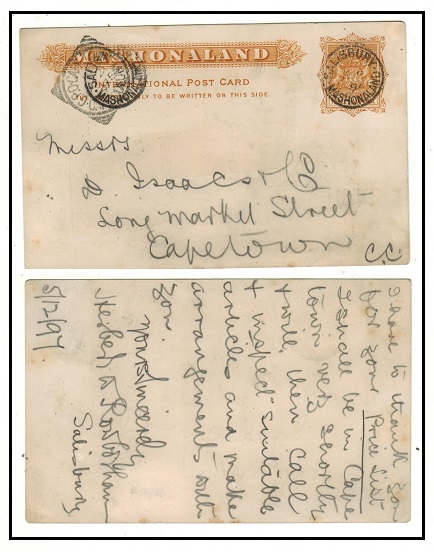 MASHONALAND
INTERNATIONAL POST CARD
ONLY TO BE WRITTEN ON THIS SIDE.
SALISBURY
MASHONALAND
MASHONALAND
Messrs
Isaacs & Co
Long Market Street
Capetown
C.C.
5/12/97
I have to thank you
for your Price List
I shall be in Cape
town very shortly
& will then call
& inspect suitable
articles and make
arrangements with
you.
Yours sincerely
Salisbury